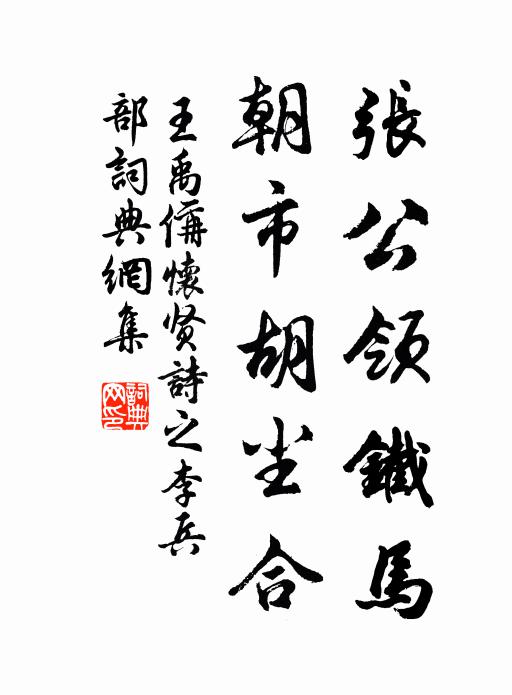 張公領鐵馬
朝市胡尘合
王禹偁懷贤詩之李兵
部詞典網集
詞典
网印